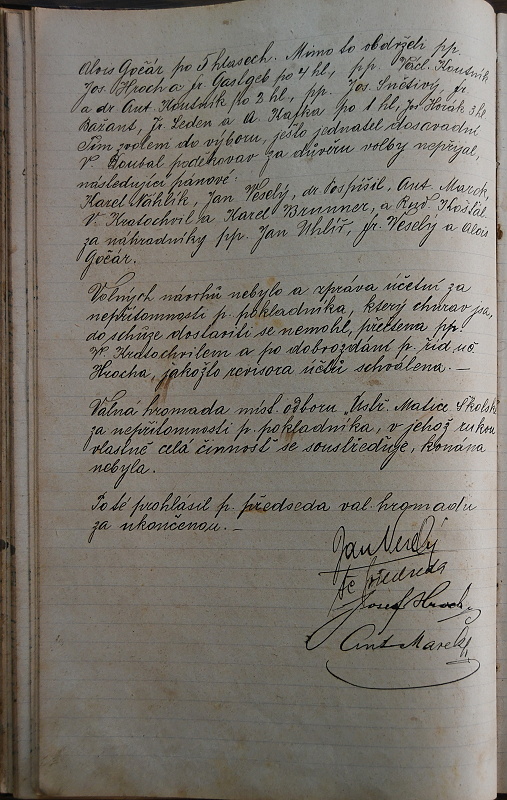 Alois Gočár po 5 hlasech. Mimo to obdrželi pp.
Jos. Hroch a fr. Gaslgeb po 4 hl., pp. Václ. Koutník
a dr. Ant. Koutník po 2 hl., pp. Jos. Snětivý, fr.
Bažant, Jr. Leden a A. Kafka po 1 hl, Jos Horák 3 hl.
Tím zvolem do výboru, ješto jednatel dosavadní
V. Doubal poděkovav za důvěru volby nepřijal,
následující pánové:
Karel Náhlík, Jan Veselý, dr. Pospíšil, Ant. Marek,
V. Kratochvil a Karel Brunner, a Rud. Košťál
za náhradníky pp. Jan Uhlíř, fr. Veselý a Alois
Gočár.
Volných návrhů nebylo a zpráva účetní za
nepřítomnosti p. pokladníka, který churav jsa,
do schůze dostaviti se nemohl, přečtena pp.
V. Kratochvilem a po dobrozdání p. říd. uč.
Hrocha, jakožto revisora účtů schválena. —
Valná hromada míst. odboru „Ústř. Matice Školské"
za nepřítomnosti p. pokladníka, v jehož rukou
vlastně celá činnost se soustřeďuje, konána
nebyla.
Poté prohlásil p. předseda val. hromadu
za ukončenou. —
Jan Veselý
předseda
Josef Hroch
Ant. Marek